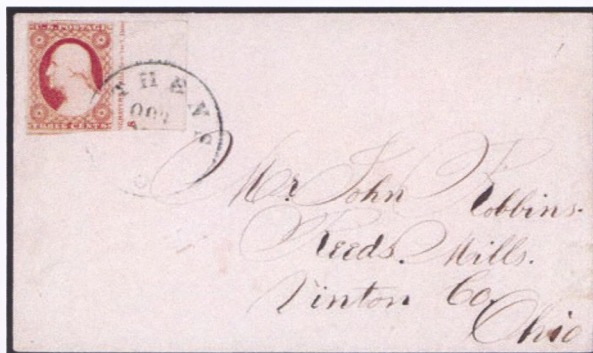 U.S. POSTAGE
THREE CENTS
ATHENS
Mr John Robbins.
Reeds. Mills.
Vinton Co.
Ohio